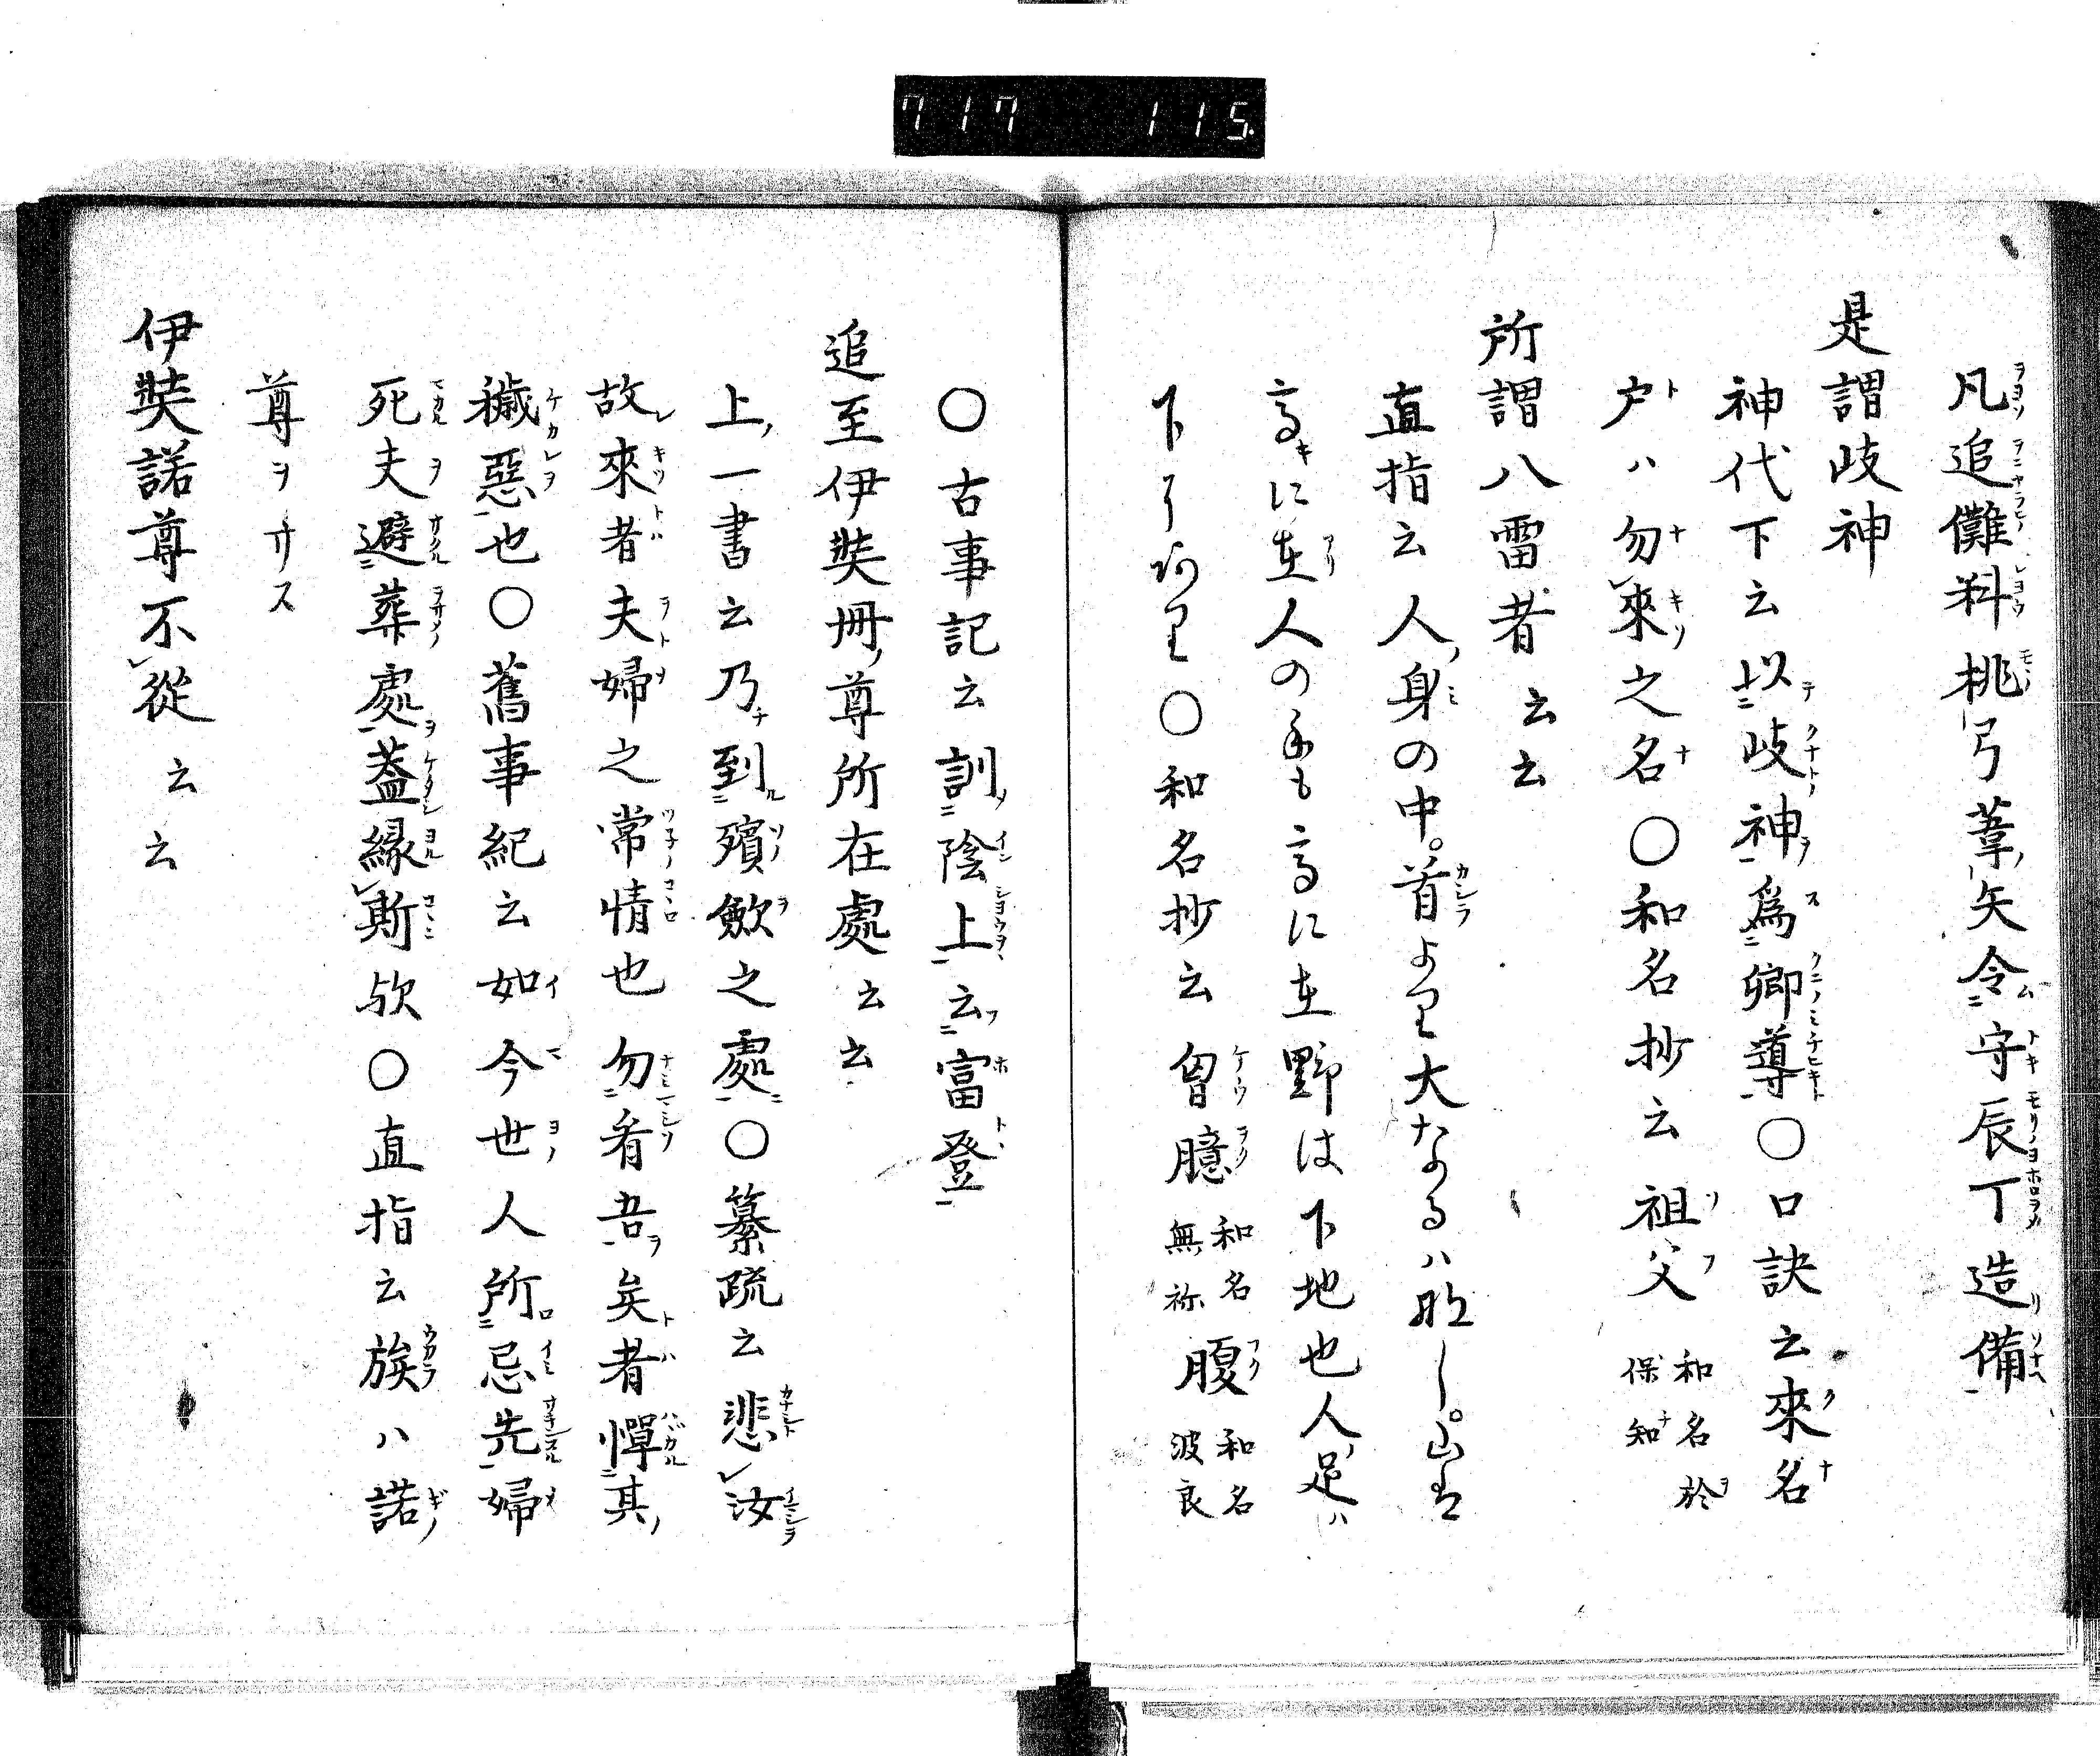 717 115
凡追儺料桃弓葦矢令守辰丁造備
是謂岐神
神代下云以岐神為郷導○口訣云來名
戸ハ勿來之名○和名抄云祖父和名於保知
所謂八雷者云云
直指云人身の中。首より大なるハ那し。山も
高に在人のも高に在野は下地也人足ハ
下に○和名抄云胷臆和名無祢腹和名波良
○古事記云訓陰上云富登
追至伊奘冊尊所在處云云
上一書云乃到殯斂之處○纂疏云悲汝
故來者夫婦之常情也勿看吾矣者憚其
穢惡也○舊事紀云如今世人所忌先婦
死夫避葬處蓋縁斯欤○直指云族ハ諾
尊ヲサス
伊奘諾尊不從云云